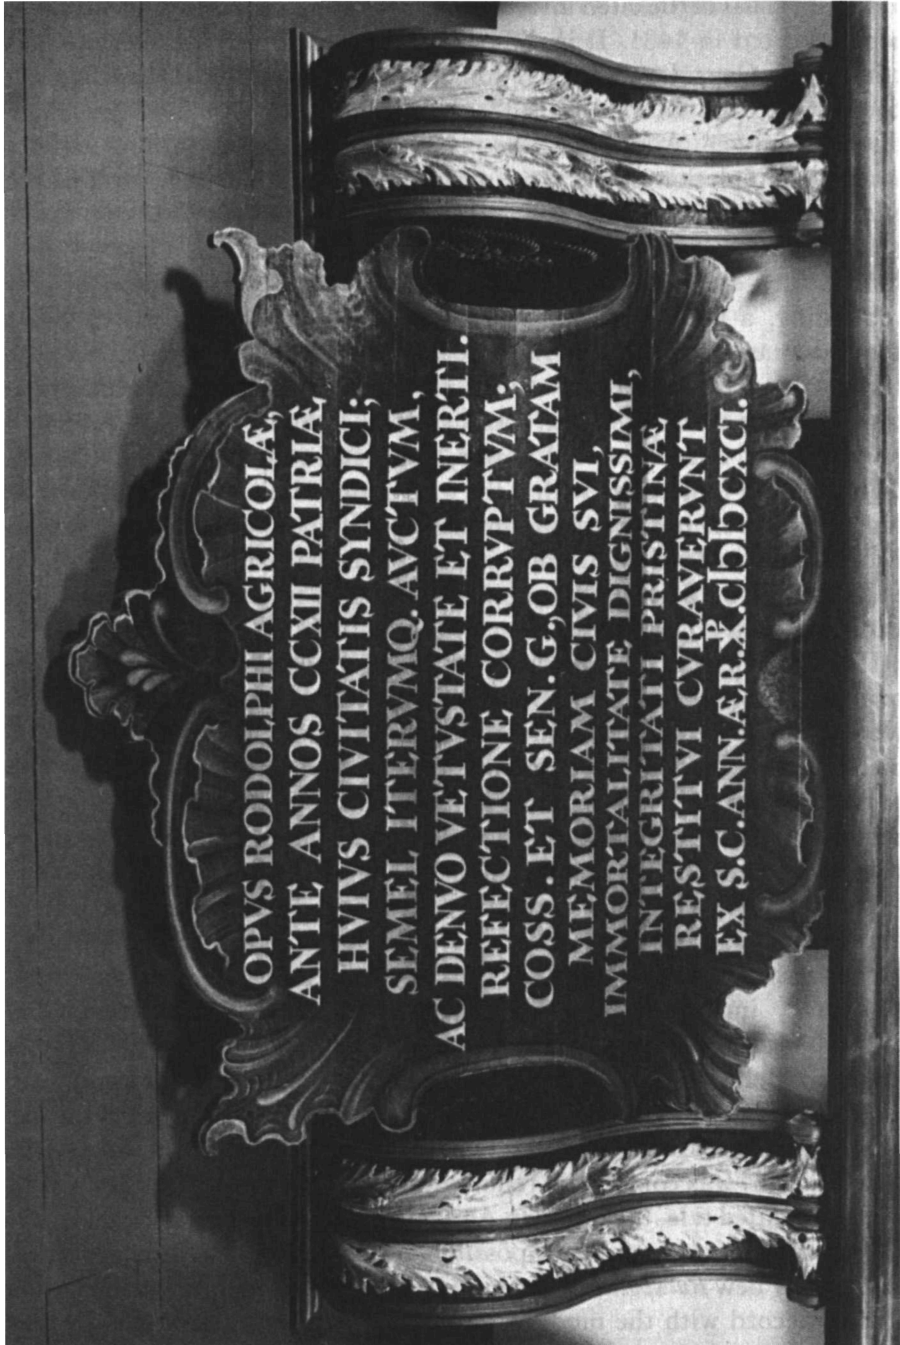 OPVS RODOLPHI AGRICOLÆ,
ANTE ANNOS CCXII PATRIÆ,
HVIVS CIVITATIS SYNDICI;
SEMEL ITERVMQ. AVCTVM,
AC DENVO VETVSTATE ET INERTI.
REFECTIONE CORRVPTVM;
COSS. ET SEN. G., OB GRATAM
MEMORIAM CIVIS SVI,
IMMORTALITATE DIGNISSIMI,
INTEGRITATI PRISTINÆ
RESTITVI CVRAVERVNT
EX S.C. ANN. ÆR. ☧. cIɔIɔcXCI.